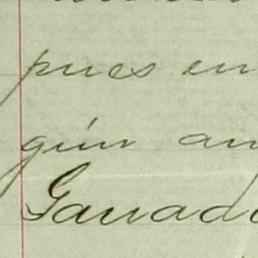 pues en
gún an
Ganad